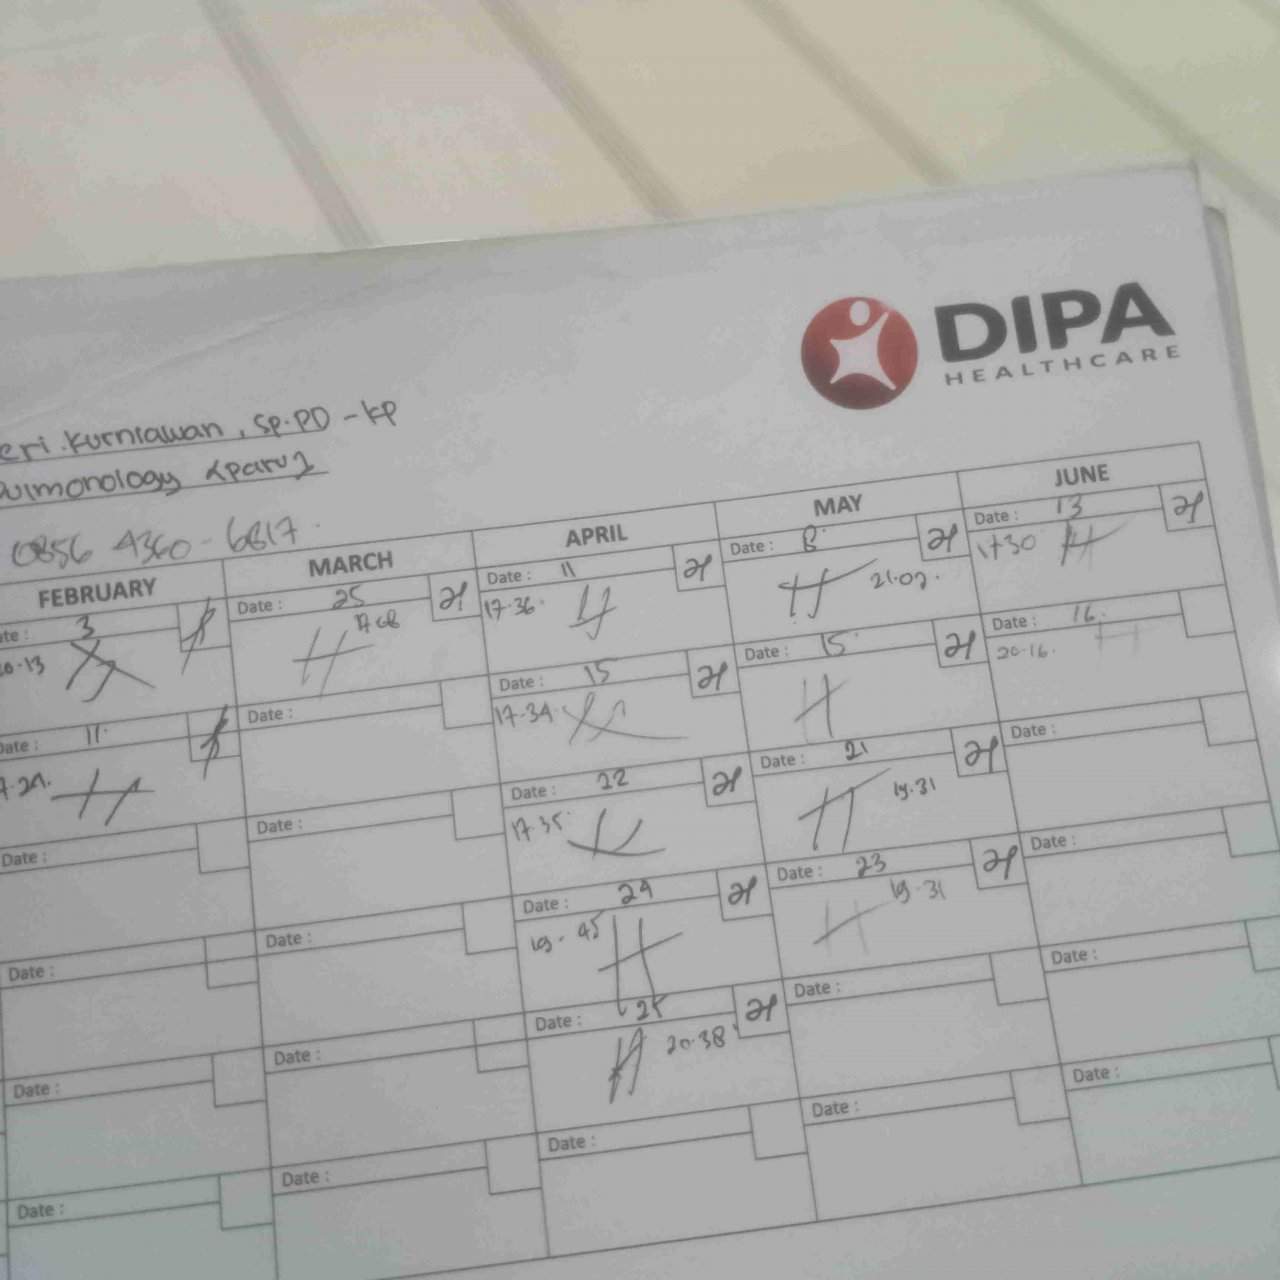 DIPA
HEALTHCARE
eri.Kurniawan, Sp.PD-KP
Pulmonology <paru>
0856 4360-6817.
FEBRUARY MARCH APRIL MAY JUNE
Date : 3
20.13
Date : 11.
Date :
Date :
Date :
Date :
Date : 25
17 08
Date :
Date :
Date :
Date :
Date :
Date : 11
17.36.
Date : 15
17.34.
Date : 22
17.35.
Date : 24
19.45
Date : 25
20.38
Date :
Date : 8.
21.07.
Date : 15.
Date : 21
19.31
Date : 23
19.31
Date :
Date :
Date : 13
1730
Date : 16.
20.16.
Date :
Date :
Date :
Date :